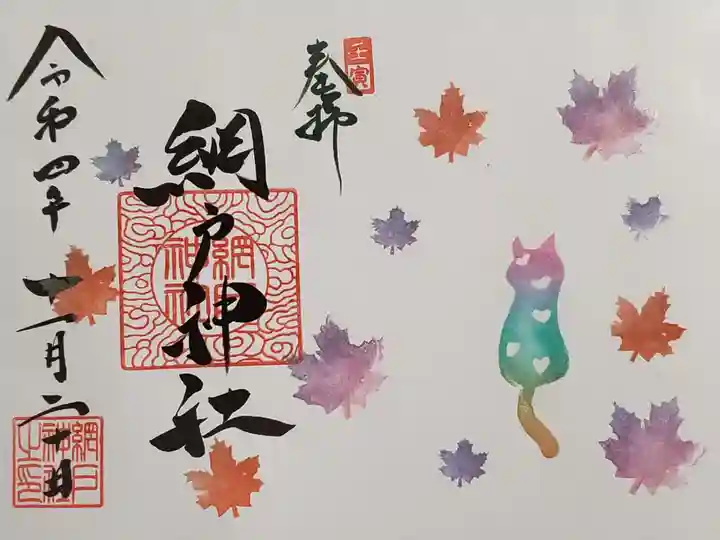 壬寅
奉拝
網戸神社
令和四年十一月二十日
網戸神社
網戸神社之印